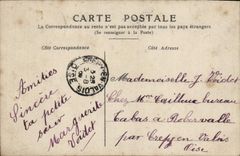 CARTE POSTALE
La Correspondance au recto n'est pas acceptée par tous les pays étrangers
(Se renseigner à la Poste)
Côté Correspondance
Côté Adresse
Amitiés
Sincère
ta petite
sœur
Marguerite
Voidet
Mademoiselle J. Voidet
Chez Mme Cailleux bureau
tabas à Roberval
par Creppen Valois
Oise